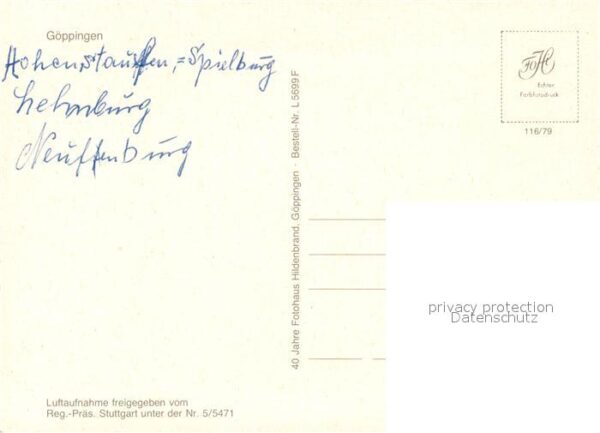 Göppingen
Hohenstauffen,=Spielburg
Lehnburg
Neuffenburg
Luftaufnahme freigegeben vom
Reg.-Präs. Stuttgart unter der Nr. 5/5471
40 Jahre Fotohaus Hildenbrand, Göppingen · Bestell-Nr. L 5699 F
Echter
Farbfotodruck
116/79
privacy protection
Datenschutz